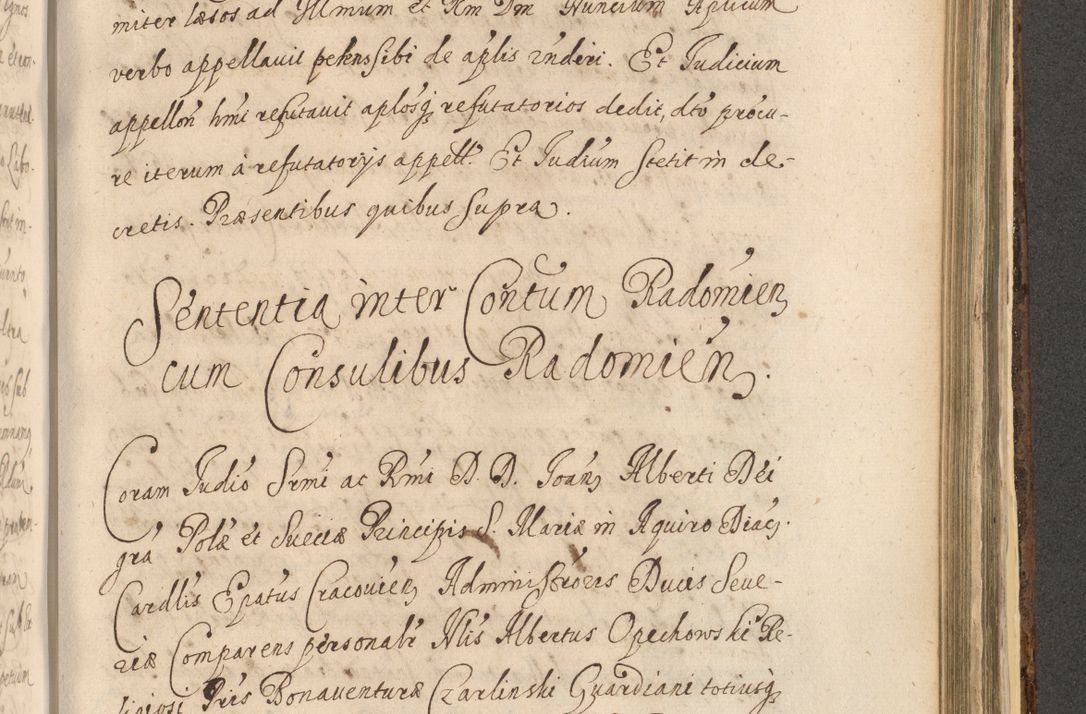 miter læsos ad Illmum et Rm Dm Nuncium Aplicum
verbo appellavit petens sibi de aplis vnderi. Et Iudicium
appellon hmi refutavit aplosq refutatorios dedit, dto procu-
re iterum à refutatorijs appellt. Et Iudium stetit in de-
cretis. Præsentibus quibus supra.
Sententia inter Contum Radomien
cum Consulibus Radomien.
Coram Iudio Srmi ac Rmi D. D. Ioan Alberti Dei
gra Polæ et Sueciæ Principis S. Mariæ in Aquiro Diac.
Cardlis Epatus Cracovien Administroris Ducis Seve-
riæ Comparens personalr Nlis Albertus Opechowski Re-
ligiosi Pris Bonaventuræ Czarlinski Guardiani totiusq